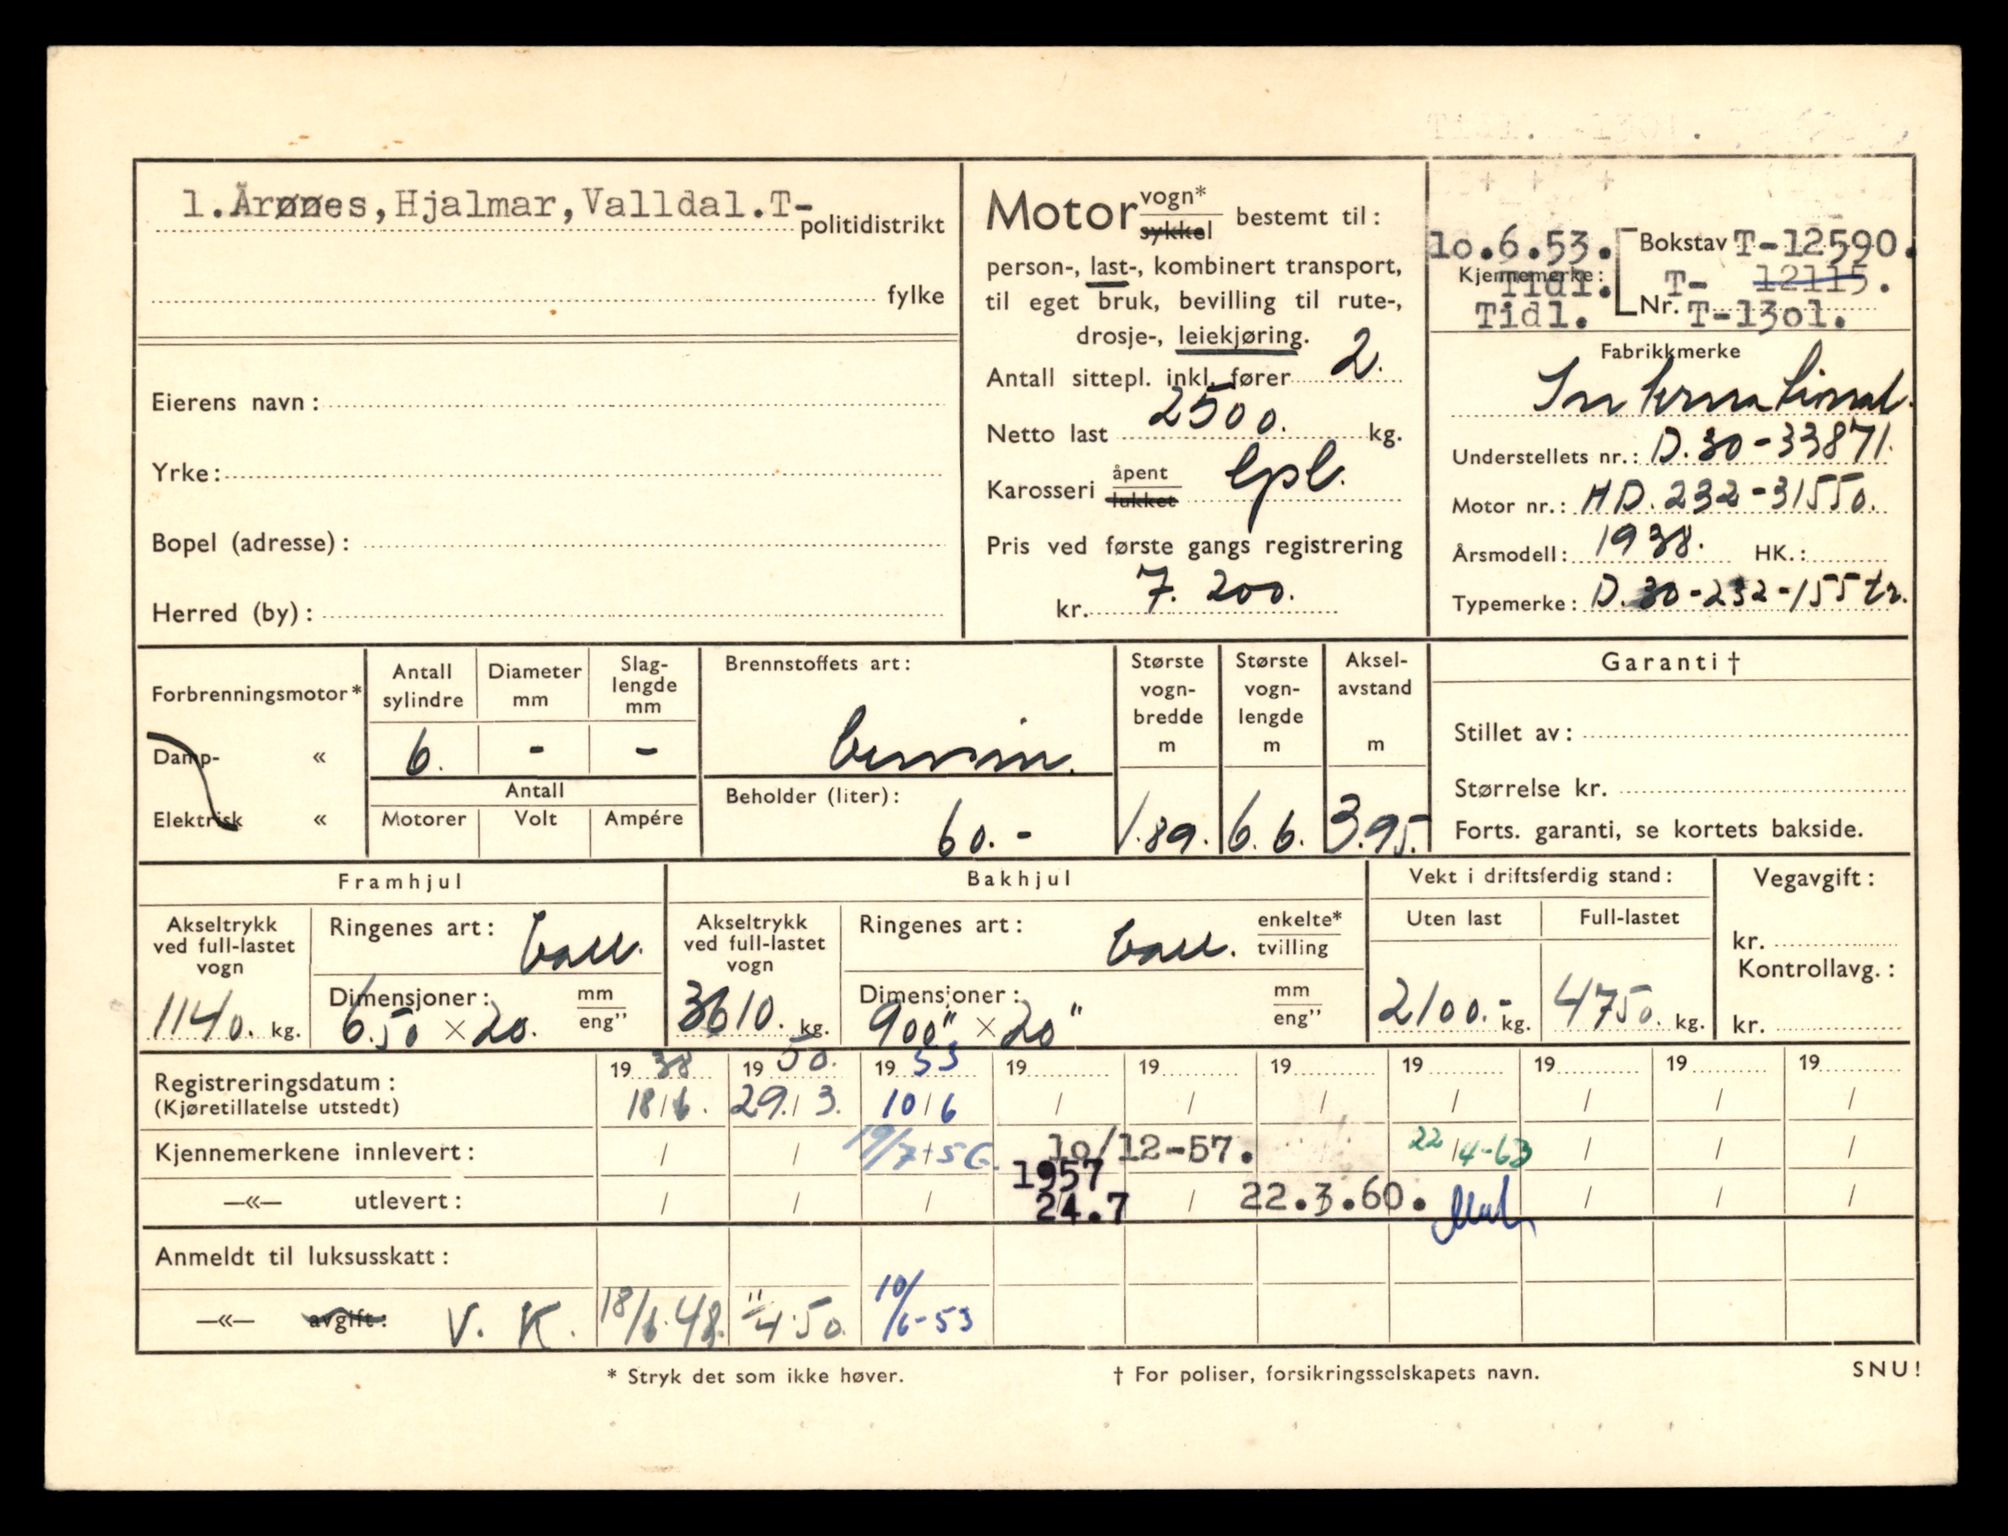 1.Årønes,Hjalmar,Valldal.T-
politidistrikt
fylke
Eierens navn:
Yrke:
Bopel (adresse):
Herred (by):
Motor vogn* sykkel bestemt til:
person-, last-, kombinert transport,
til eget bruk, bevilling til rute-,
drosje-, leiekjøring.
Antall sittepl. inkl. fører 2.
Netto last 2500. kg.
Karosseri åpent lukket lpl.
Pris ved første gangs registrering
kr. 7.200.
10.6.53. Bokstav T-12590.
Kjennemerke: Tidl. T- 12115.
Tidl. Nr. T-1301.
Fabrikkmerke
International.
Understellets nr.: D.30-33871.
Motor nr.: HD.232-31550.
Årsmodell: 1938. HK.:
Typemerke: D.30-232-155tr.
Forbrenningsmotor*
Damp- «
Elektrisk «
Antall sylindre 6.
Diameter mm -
Slaglengde mm -
Antall
Motorer Volt Ampére
Brennstoffets art:
bensin.
Beholder (liter):
60.-
Største vogn-bredde m 1.89.
Største vogn-lengde m 6.6.
Aksel-avstand m 3.95.
Garanti†
Stillet av:
Størrelse kr.
Forts. garanti, se kortets bakside.
Framhjul
Akseltrykk ved full-lastet vogn 1140. kg.
Ringenes art: ball.
Dimensjoner: mm eng" 6.50 × 20.
Bakhjul
Akseltrykk ved full-lastet vogn 3610. kg.
Ringenes art: ball. enkelte* tvilling
Dimensjoner: mm eng" 900" × 20"
Vekt i driftsferdig stand:
Uten last 2100.- kg.
Full-lastet 4750. kg.
Vegavgift:
kr.
Kontrollavg.:
kr.
19 38 19 50. 19 53 19 19 19 19 19 19 19
Registreringsdatum:
(Kjøretillatelse utstedt) 18/6. 29./3. 10/6 / / / / / / /
Kjennemerkene innlevert: / / 19/7-56 10/12-57. 22/4-63 / / /
—«— utlevert: / / / 1957 24.7 / 22.3.60. / / /
Anmeldt til luksusskatt:
—«— avgift: V. K. 18/6.48. 11/4.50. 10/6-53
* Stryk det som ikke høver.
† For poliser, forsikringsselskapets navn.
SNU!